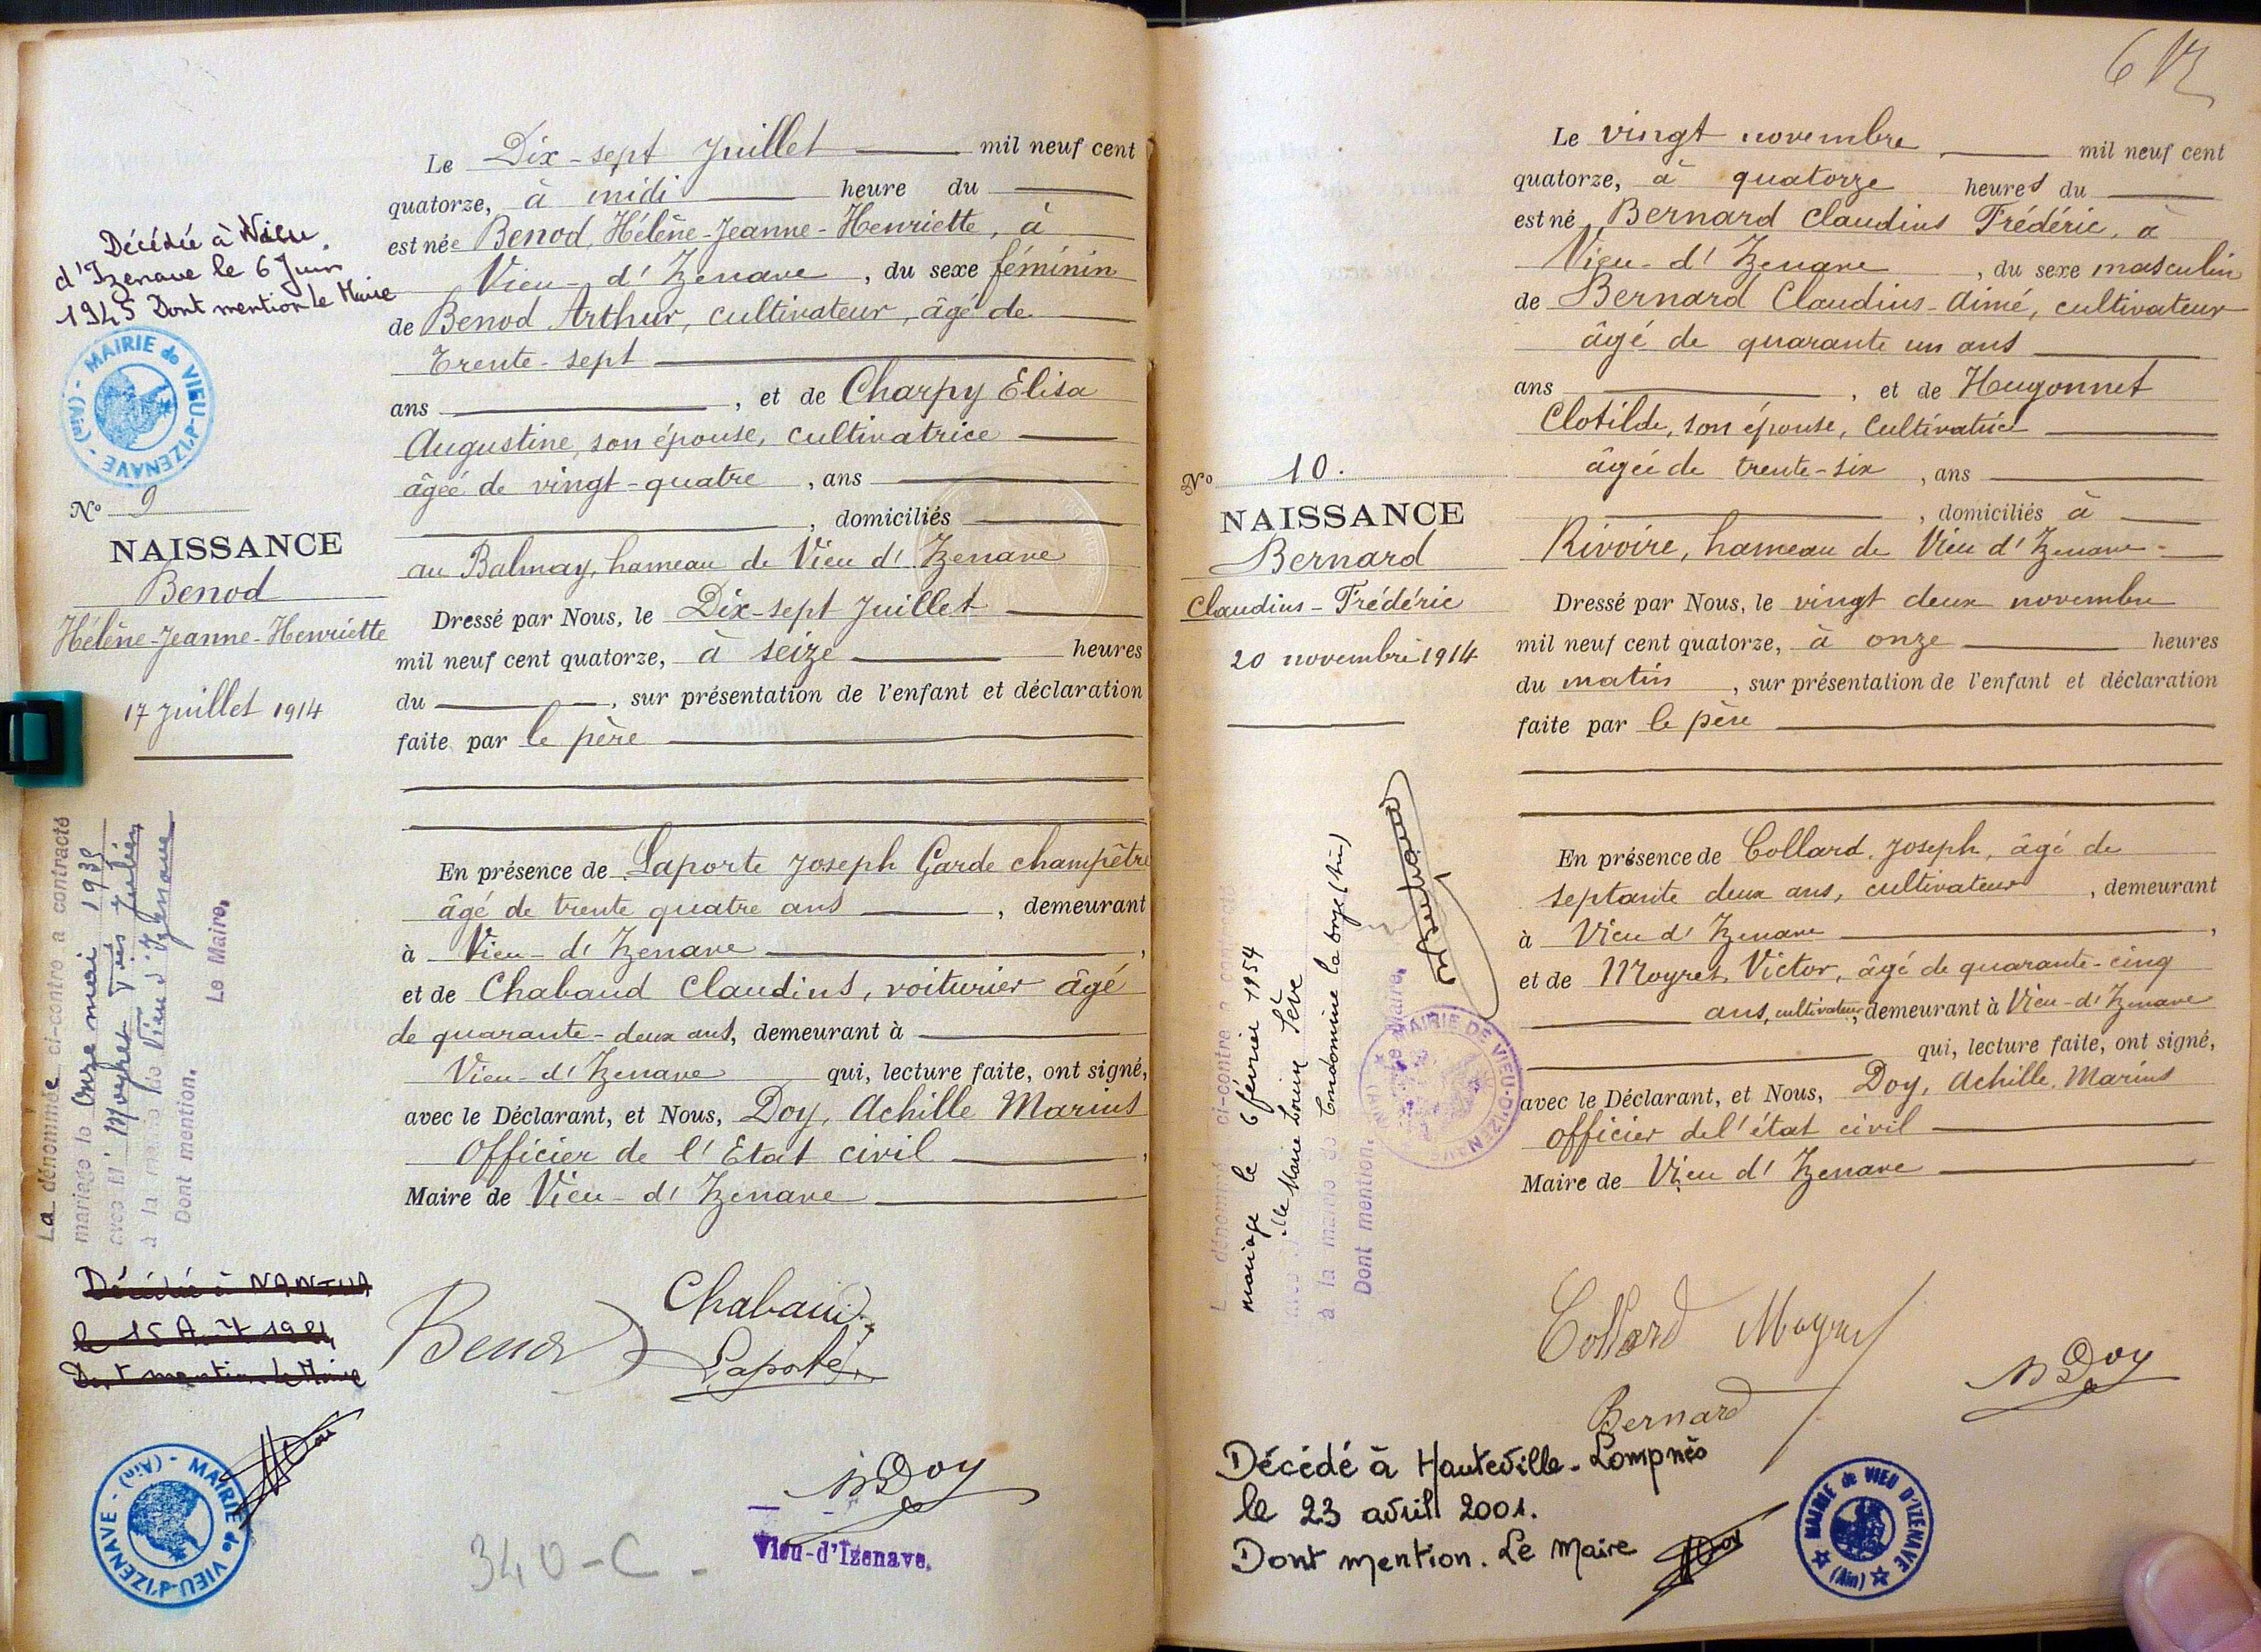 Décédée à Vieu
d'Izenave le 6 Juin
1945 Dont mention le Maire
MAIRIE de VIEU-d'IZENAVE - (Ain) -
N° 9
NAISSANCE
Benod
Hélène-Jeanne-Henriette
17 Juillet 1914
La dénommée ci-contre a contracté
mariage le Onze mai 1935
avec M. Moyret Julien
à la mairie de Vieu d'Izenave
Dont mention.
Le Maire,
Décédée à NANTUA
le 15 A
Dont mention. Le Maire
MAIRIE de VIEU-d'IZENAVE - (Ain) -
Le Dix-sept Juillet mil neuf cent
quatorze, à midi heure du
est née Benod, Hélène-Jeanne-Henriette, à
Vieu-d'Izenave, du sexe féminin
de Benod Arthur, cultivateur, âgé de
Trente-sept
ans, et de Charpy Elisa
Augustine, son épouse, cultivatrice
âgée de vingt-quatre, ans
, domiciliés
au Balmay, hameau de Vieu d'Izenave
Dressé par Nous, le Dix-sept Juillet
mil neuf cent quatorze, à seize heures
du, sur présentation de l'enfant et déclaration
faite par le père
En présence de Laporte Joseph Garde champêtre
âgé de trente quatre ans, demeurant
à Vieu-d'Izenave,
et de Chabaud Claudius, voiturier âgé
de quarante-deux ans, demeurant à
Vieu-d'Izenave qui, lecture faite, ont signé,
avec le Déclarant, et Nous, Doy, Achille Marius
Officier de l'Etat civil,
Maire de Vieu-d'Izenave
Chabaud
Benod
Laporte
Doy
Vieu-d'Izenave.
340-C-
N° 10.
NAISSANCE
Bernard
Claudius-Frédéric
20 novembre 1914
L dénommé ci-contre a contracté
mariage le 6 février 1954
avec Mlle Marie Louise Sève
à la mairie de Condamine la Doye (Ain)
Dont mention.
Le Maire,
MAIRIE DE VIEU-D'IZENAVE (AIN)
Le vingt novembre mil neuf cent
quatorze, à quatorze heures du
est né Bernard Claudius Frédéric, à
Vieu-d'Izenave, du sexe masculin
de Bernard Claudius-Aimé, cultivateur
âgé de quarante un ans
ans, et de Hugonnet
Clotilde, son épouse, Cultivatrice
âgée de trente-six, ans
, domiciliés à
Rivoire, hameau de Vieu d'Izenave-
Dressé par Nous, le vingt deux novembre
mil neuf cent quatorze, à onze heures
du matin, sur présentation de l'enfant et déclaration
faite par le père
En présence de Collard, Joseph, âgé de
septante deux ans, cultivateur, demeurant
à Vieu d'Izenave,
et de Moyret, Victor, âgé de quarante-cinq
ans, cultivateur, demeurant à Vieu-d'Izenave
qui, lecture faite, ont signé,
avec le Déclarant, et Nous, Doy, Achille, Marius
officier de l'état civil
Maire de Vieu d'Izenave
Collard Moyret
Doy
Bernard
Décédé à Hauteville-Lompnès
le 23 avril 2001.
Dont mention. Le Maire
MAIRIE de VIEU D'IZENAVE (Ain)